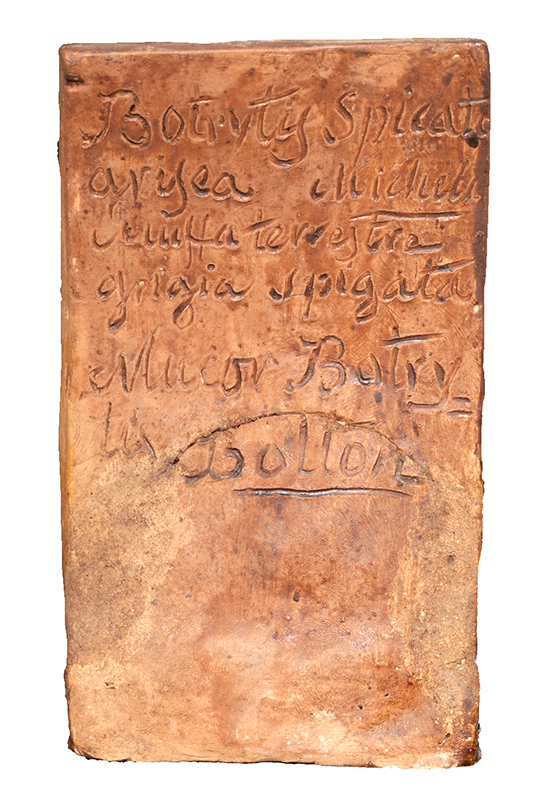 Botrytis Spicat
grisea Micheli
Muffa terrestre
grigia spigata
Mucor Botry=
tis Bolton